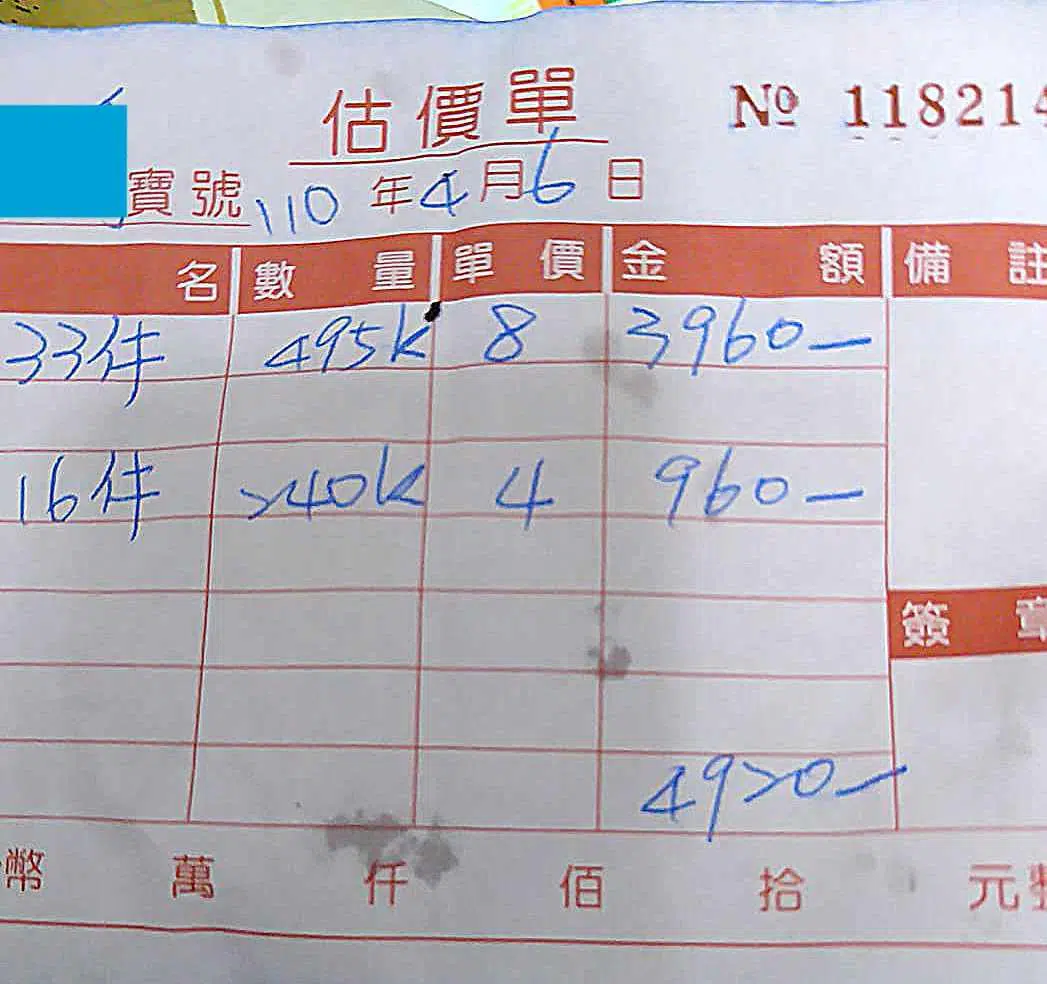 估價單 № 118214
寶號 110年4月6日
名 數量 單價 金額 備註
33件 495k 8 3960—
16件 240k 4 960—
簽章
4920—
幣 萬 仟 佰 拾 元整